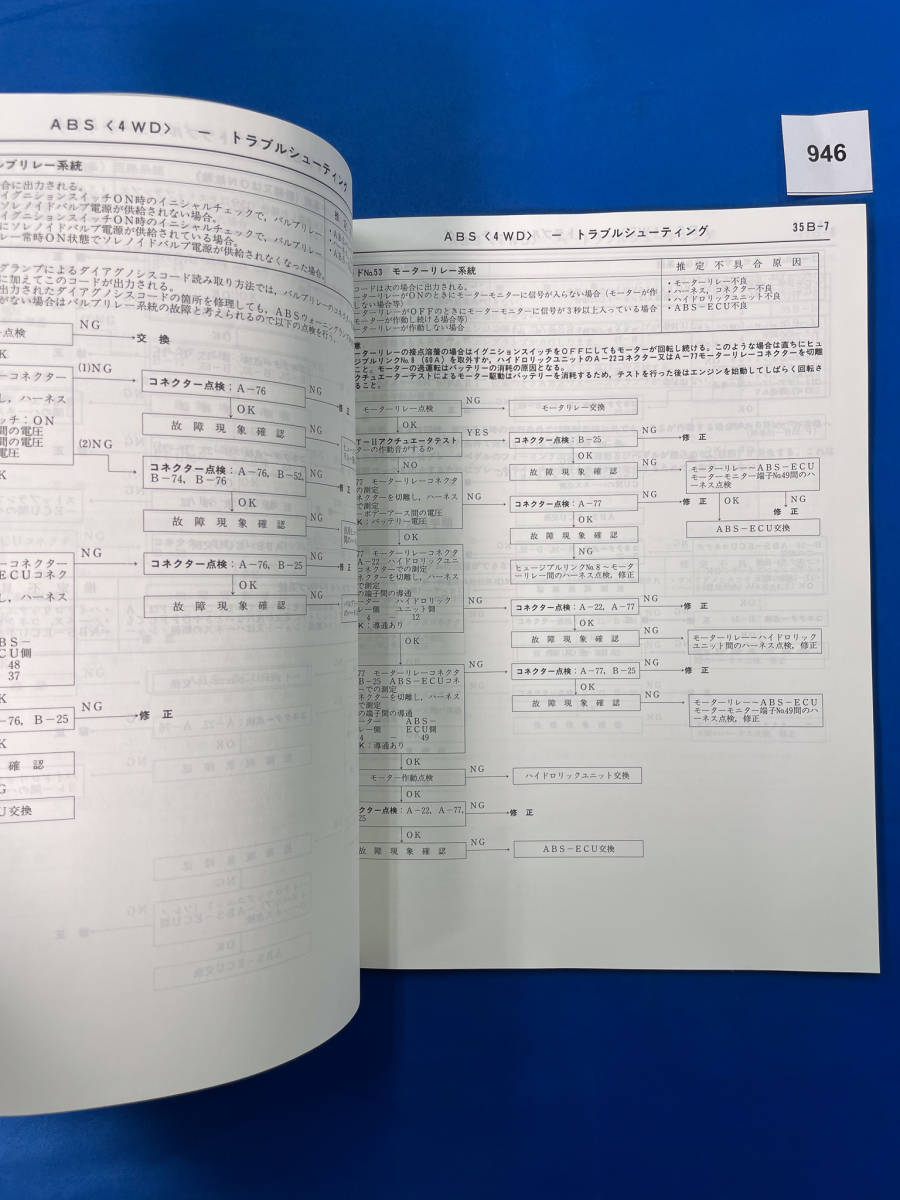 946
ABS〈4WD〉 ー トラブルシューティング
ルブリレー系統
合に出力される。
イグニションスイッチON時のイニシャルチェックで，バルブリレー
ソレノイドバルブ電源が供給されない場合。
イグニションスイッチON時のイニシャルチェックで，バルブリレー
にソレノイドバルブ電源が供給されている場合。
レー常時ON状態でソレノイドバルブ電源が供給されなくなった場合。
グランプによるダイアグノシスコード読み取り方法では，バルブリレーの
に加えてこのコードが出力される。
出力されたダイアグノシスコードの箇所を修理しても，ABSウォーニングランプ
がない場合はバルブリレー系統の故障と考えられるので以下の点検を行う。
点検
NG
交 換
OK
コネクター
し，ハーネス
ッチ：ON
間の電圧
間の電圧
電圧
(1)NG
コネクター点検：A－76
NG
修 正
OK
故 障 現 象 確 認
NG
(2)NG
コネクター点検：A－76, B－52,
B－74, B－76
NG
修 正
OK
故 障 現 象 確 認
NG
ーコネクター
ECUコネク
し，ハーネス
NG
コネクター点検：A－76, B－25
NG
修 正
OK
故 障 現 象 確 認
NG
ABS－
ECU側
48
37
－76, B－25
NG
修 正
確 認
NG
CU交換
ABS〈4WD〉 ー トラブルシューティング
35B-7
ドNo.53 モーターリレー系統
推 定 不 具 合 原 因
コードは次の場合に出力される。
ーターリレーがONのときにモーターモニターに信号が入らない場合（モーターが作
しない場合等）
ーターリレーがOFFのときにモーターモニターに信号が3秒以上入っている場合
モーターが作動し続ける場合等）
ーターリレーが作動しない場合
・モーターリレー不良
・ハーネス，コネクター不良
・ハイドロリックユニット不良
・ABS－ECU不良
意
ーターリレーの接点溶着の場合はイグニションスイッチをOFFにしてもモーターが回転し続ける。このような場合は直ちにヒュ
ジブルリンクNo.8（60A）を取外すか，ハイドロリックユニットのA－22コネクター又はA－77モーターリレーコネクターを切離
こと。モーターの過運転はバッテリーの消耗の原因となる。
クチュエーターテストによるモーター駆動はバッテリーを消耗するため，テストを行った後はエンジンを始動してしばらく回転さ
ること。
モーターリレー点検
NG
モータリレー交換
OK
T－IIアクチュエータテスト
ターの作動音がするか
YES
コネクター点検：B－25
NG
修 正
OK
故 障 現 象 確 認
NG
モーターリレー～ABS－ECU
モーターモニター端子No.49間のハ
ーネス点検
OK
NG
修 正
ABS－ECU交換
NO
77 モーターリレーコネクタ
の測定
コネクターを切離し，ハーネス
で測定
－ボデーアース間の電圧
OK：バッテリー電圧
NG
コネクター点検：A－77
NG
修 正
OK
故 障 現 象 確 認
NG
ヒュージブルリンクNo.8～モータ
ーリレー間のハーネス点検，修正
OK
77 モーターリレーコネクタ
A－22 ハイドロリックユニ
コネクターでの測定
ネクターを切離し，ハーネス
で測定
の端子間の導通
ーター ハイドロリック
レー側 ユニット側
4 12
OK：導通あり
NG
コネクター点検：A－22, A－77
NG
修 正
OK
故 障 現 象 確 認
NG
モーターリレー～ハイドロリック
ユニット間のハーネス点検，修正
OK
77 モーターリレーコネクタ
B－25 ABS－ECUコネ
ーでの測定
コネクターを切離し，ハーネス
で測定
の端子間の導通
ーター ABS－
レー側 ECU側
4 ー 49
OK：導通あり
NG
コネクター点検：A－77, B－25
NG
修 正
OK
故 障 現 象 確 認
NG
モーターリレー～ABS－ECU
モーターモニター端子No.49間のハ
ーネス点検，修正
OK
モーター作動点検
NG
ハイドロリックユニット交換
OK
クター点検：A－22, A－77,
25
NG
修 正
OK
故 障 現 象 確 認
NG
ABS－ECU交換